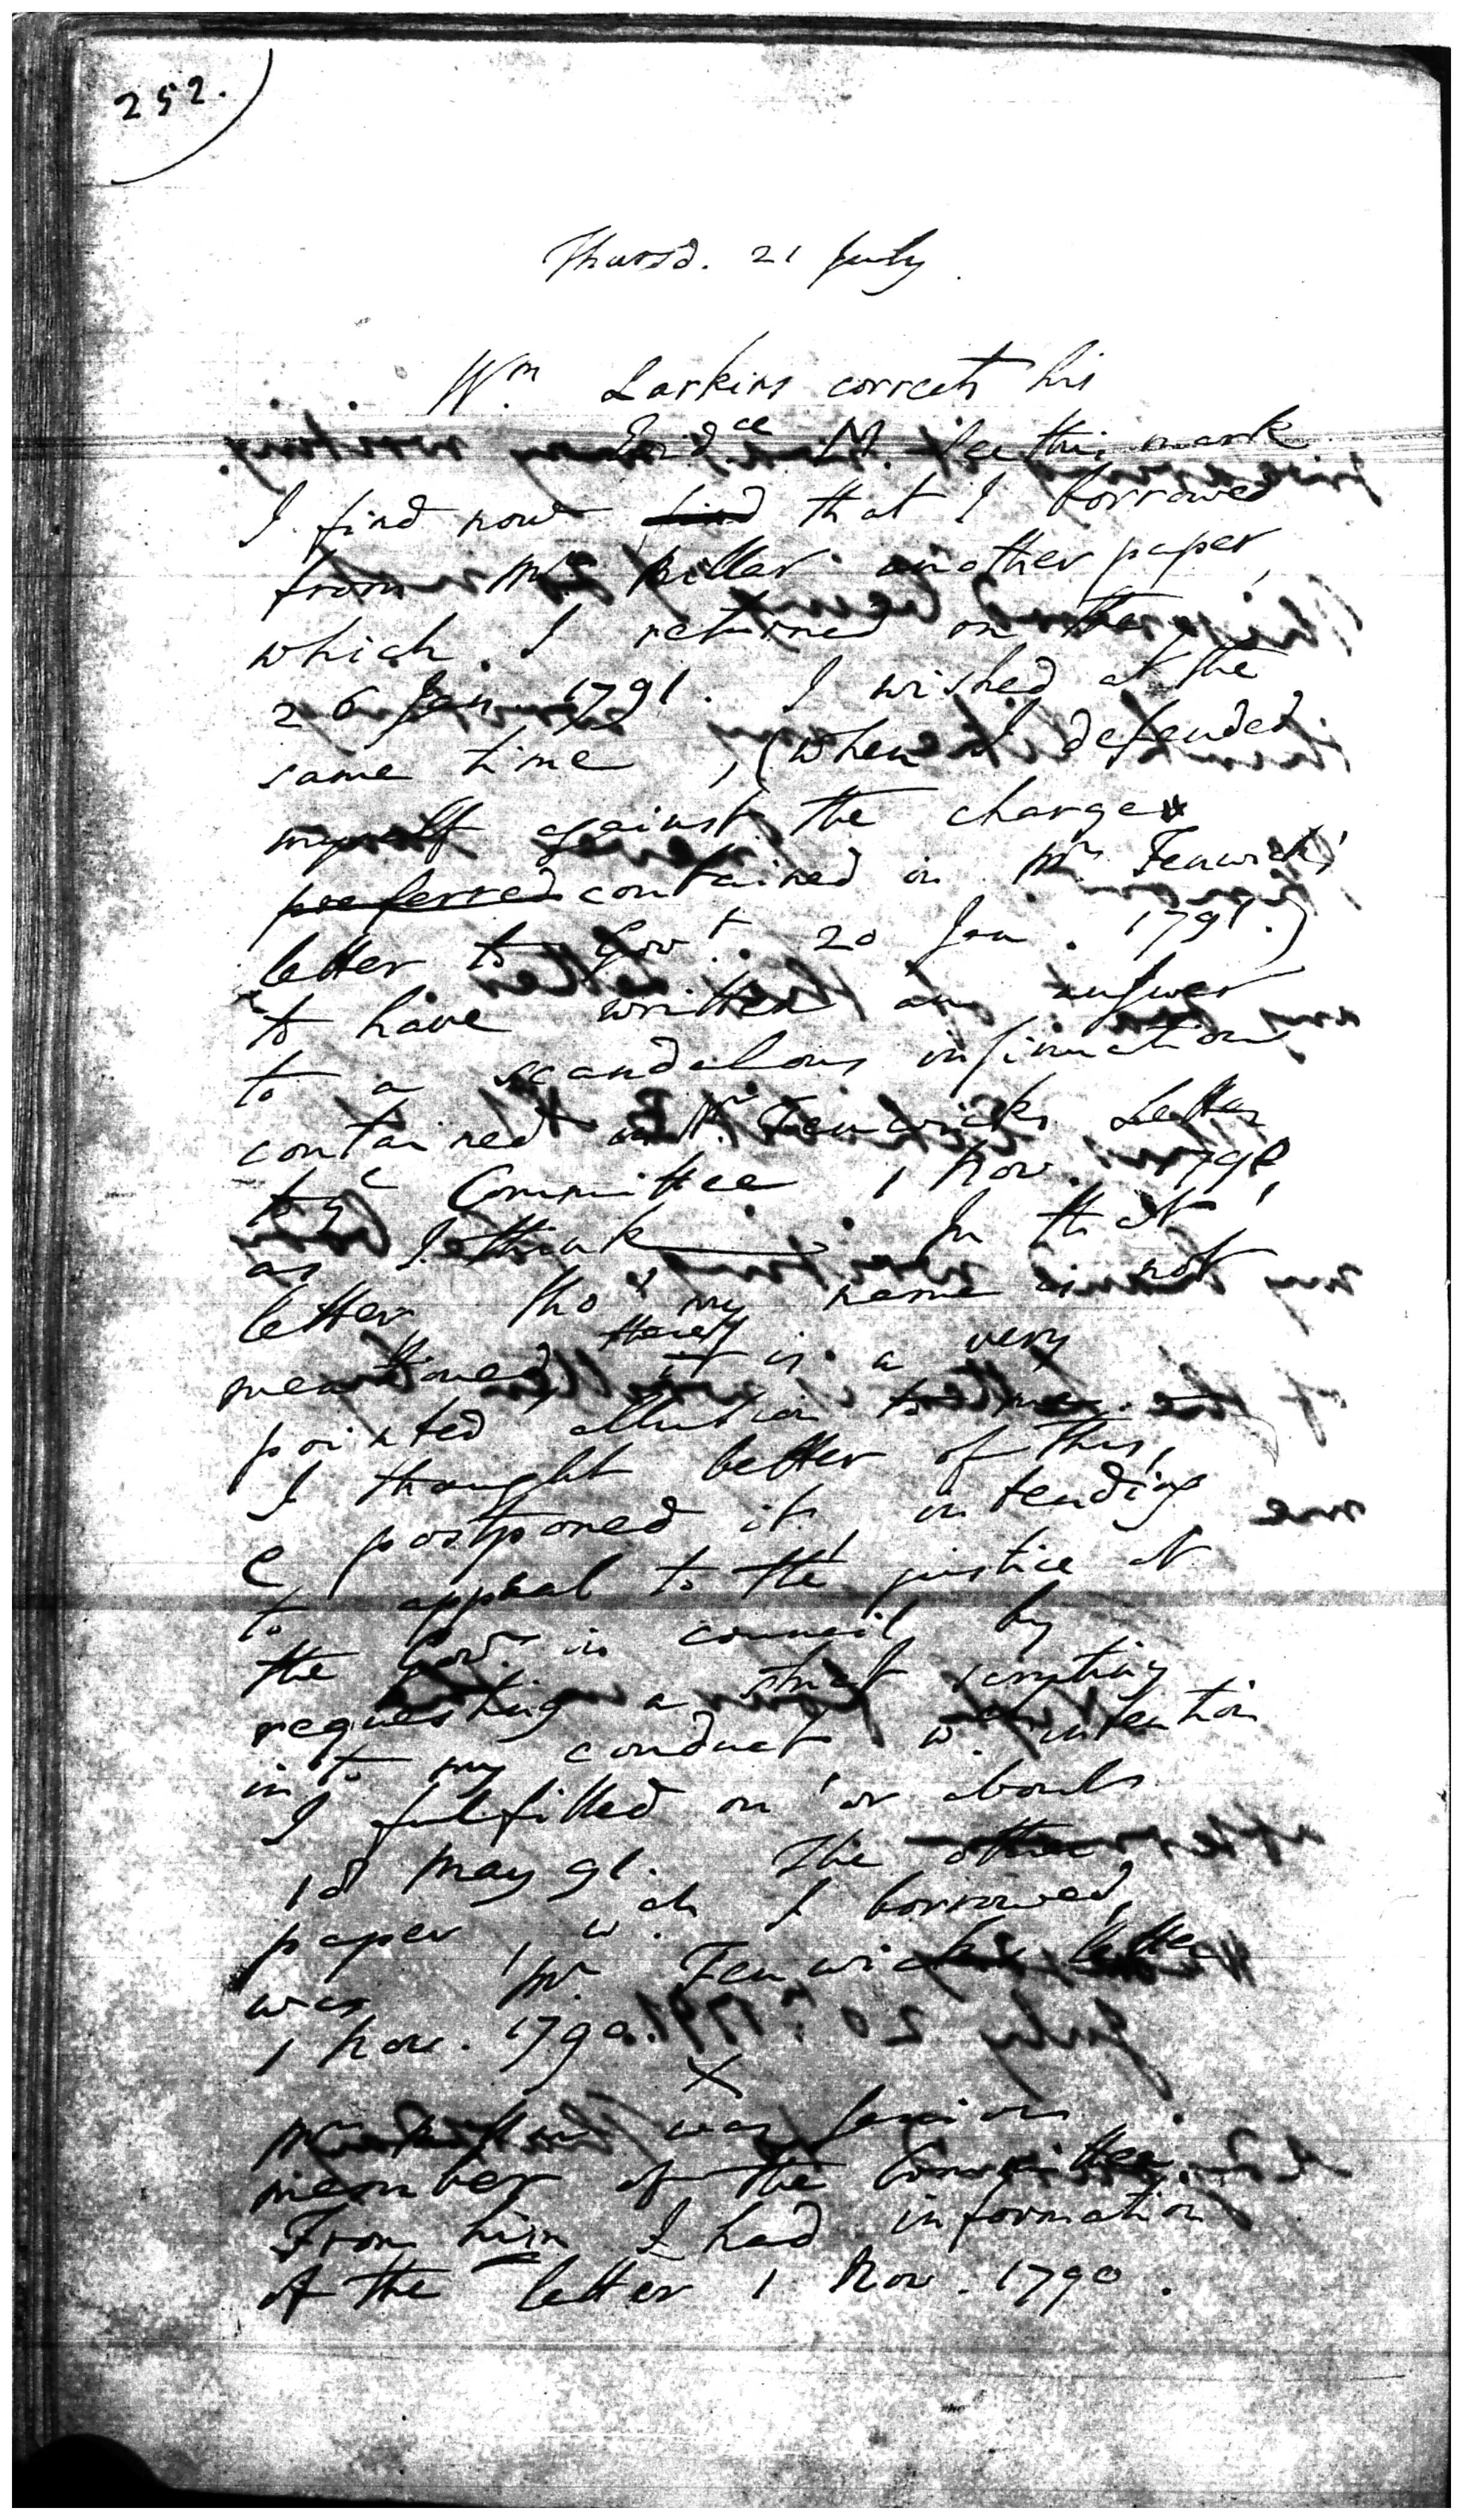 252.
Thursd. 21 July.
Wm Larkins corrects his
Evidce see this mark
I find now find that I borrowed
from Mr Miller another paper,
which I returned on the
26 Jan 1791. I wished at the
same time, (when I defended
myself against the charge
preferred contained in Mr Fenwick's
letter to Govt. 20 Jan. 1791.)
to have written an answer
to a scandalous insinuation
contained in Mr. Fenwicks Letter
to ye Committee 1 Nov. 1790,
as I think In that
letter tho' my name is not
mentioned, there is a very
pointed allusion to me.
I thought better of this,
& postponed it, intending
to appeal to the justice of
the Govr. in council, by
requesting a strict scrutiny
into my conduct wch intention
I fulfilled on or about
18 May 91. The other
paper, wch I borrowed,
was Mr. Fenwicks letter
1 Nov. 1790.
X
Mr was senior
member of the Committee.
From him I had information
of the letter 1 Nov. 1790.